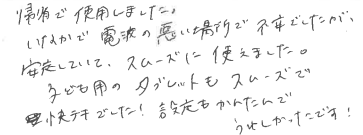 帰省で使用しました。
いなかで電波の悪い場所で不安でしたが、
安定していて、スムーズに使えました。
子ども用のタブレットもスムーズで
快テキでした！設定もかんたんで
うれしかったです！